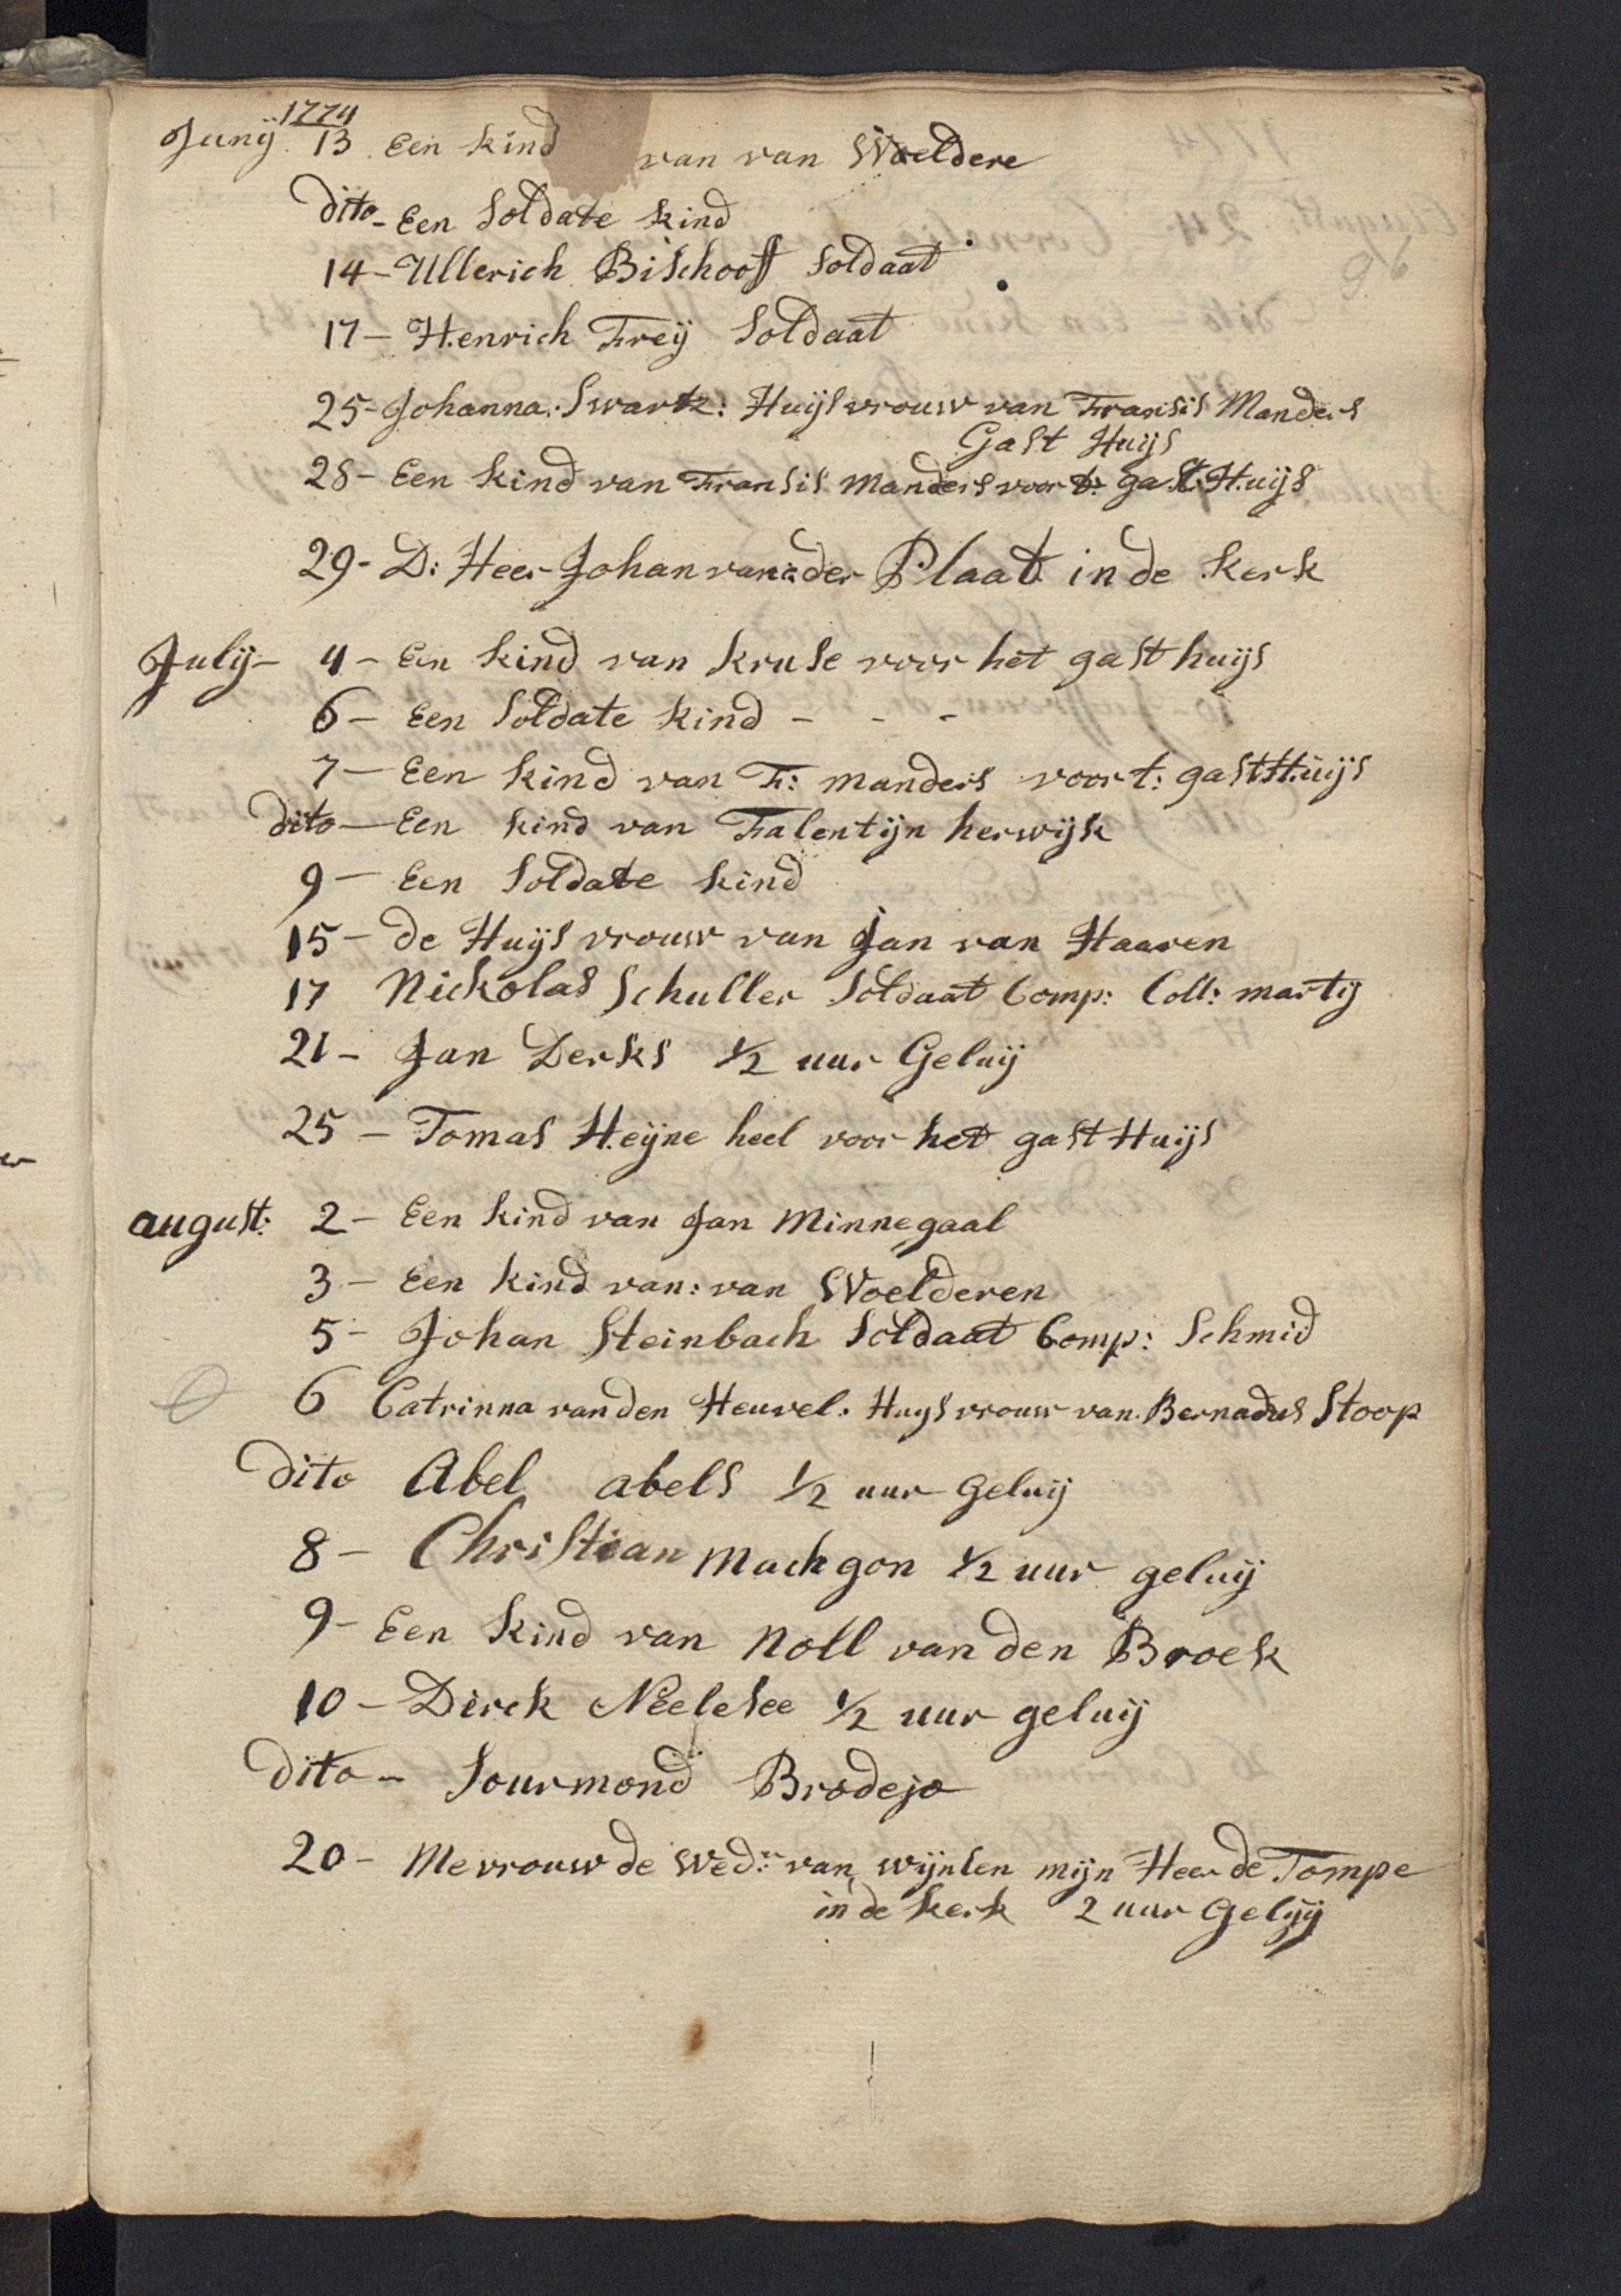 1774
Junij. 13. Een kind van van Woeldere
dito - Een Soldate kind
14 - Ullerich Bischooff Soldaat
17 - Henrich Freij Soldaat
25 - Johanna: Swartz: Huijsvrouw van Fransis Manders
Gast Huijs
28 - Een kind van Fransis Manders voor t: gast Huijs
29 - D: Heer Johan van der Plaat in de Kerk
Julij - 4 - Een kind van Kruse voor het gasthuijs
6 - Een Soldate kind - - -
7 - Een kind van F: Manders voor t: gastHuijs
dito - Een kind van Falentijn herwijk
9 - Een Soldate kind
15 - de Huijsvrouw van Jan van Haaren
17 Nickolas Schuller Soldaat Comp: Coll: martij
21 - Jan Derks 1/2 uur Geluij
25 - Tomas Heijne heel voor het gast Huijs
august: 2 - Een kind van Jan Minnegaal
3 - Een kind van: van Woelderen
5 - Johan Steinbach Soldaat Comp: Schmid
6 Catrinna van den Heuvel. Huijsvrouw van Bernadus Stoop
dito Abel abels 1/2 uur geluij
8 - Christian Machgon 1/2 uur geluij
9 - Een Kind van Noll van den Broek
10 - Dirck 1/2 uur geluij
dito - Sourmond Brodejo
20 - Mevrouw de Wed: van wijnlen mijn Heer de Tompe
in de Kerk 2 uur Gelijj